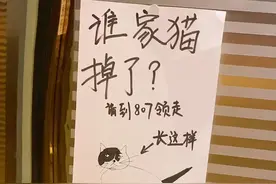 谁家猫
掉了？
前到807领走
长这样